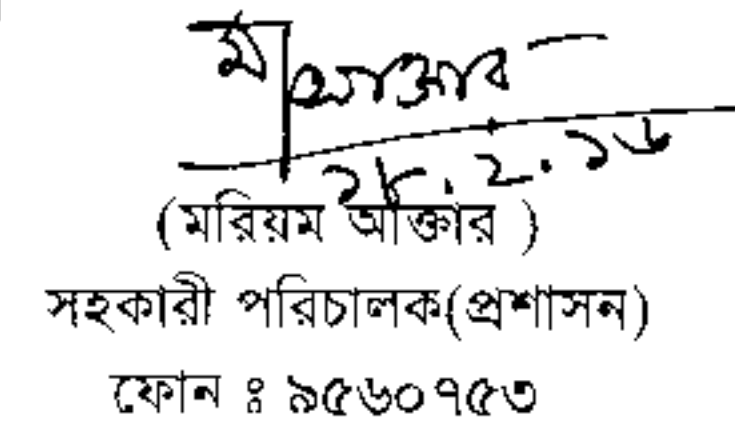 ম আক্তার
১৮.২.১৬
(মরিয়ম আক্তার )
সহকারী পরিচালক(প্রশাসন)
ফোন ঃ ৯৫৬০৭৫৩